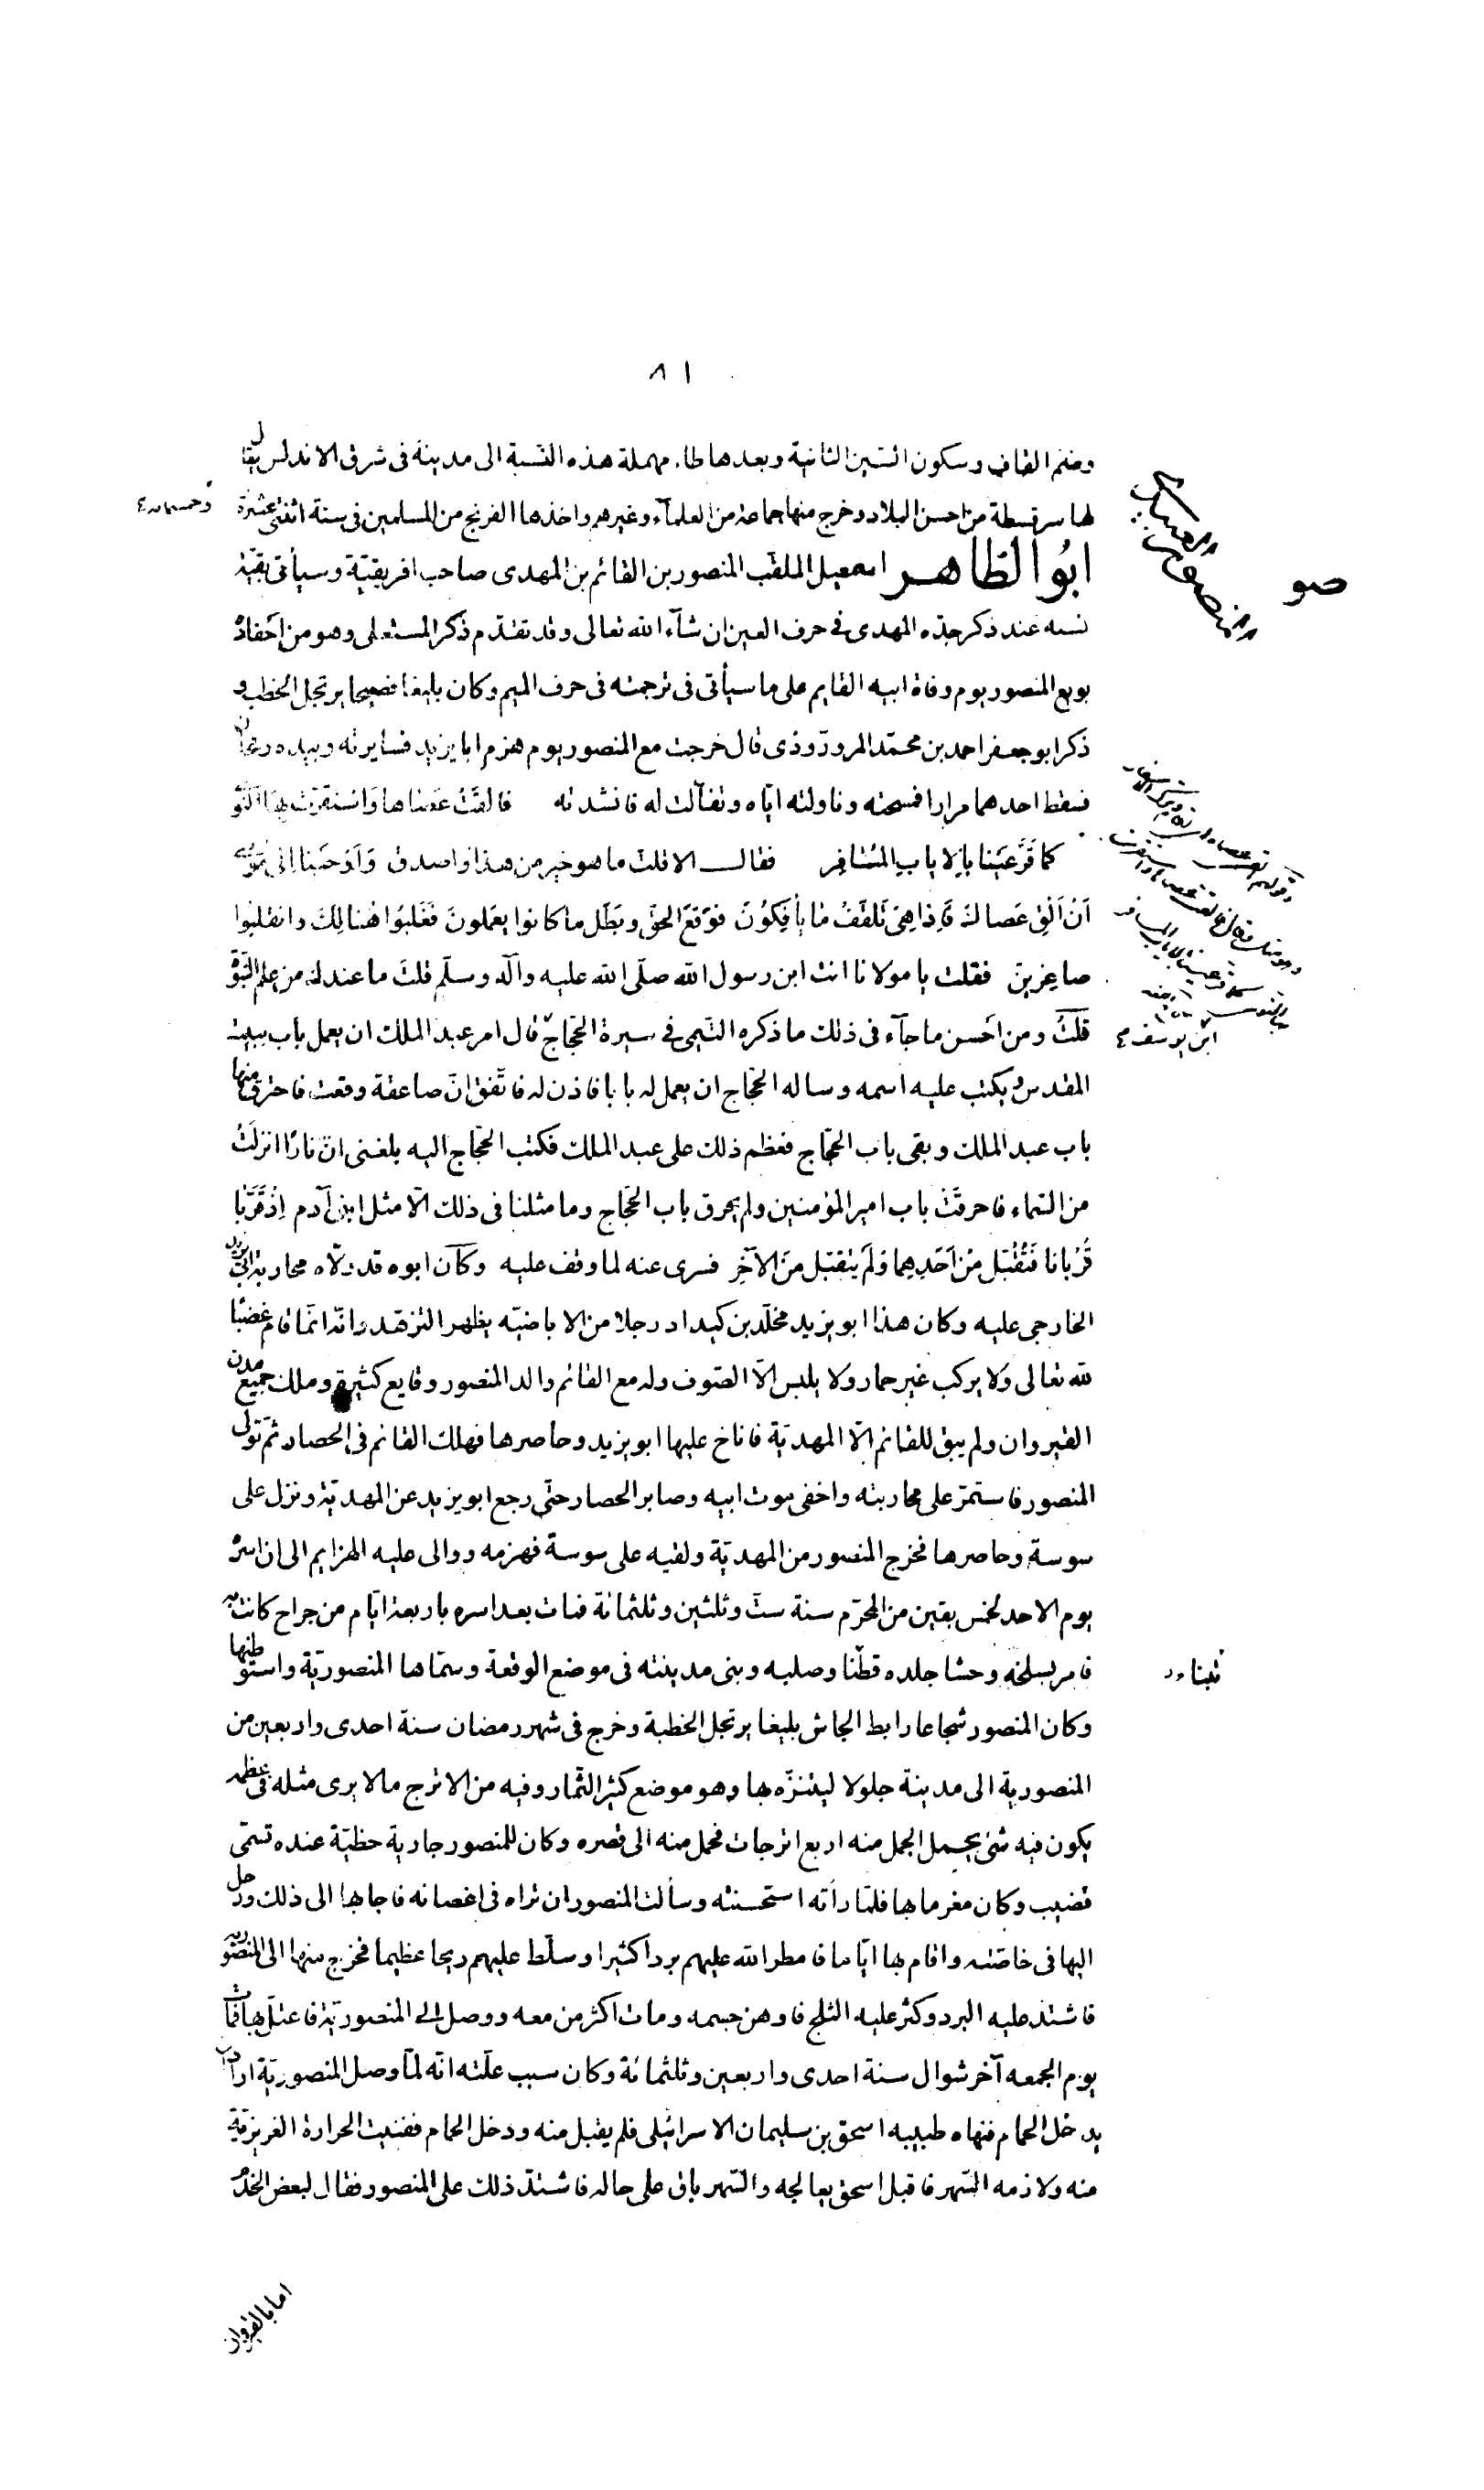 ٨١
وضم القاف وسكون السين الثانية وبعدها طاء مهملة هذه النسبة الى مدينة فى شرق الاندلس يقال
لها سرقسطة من احسن البلاد وخرج منها جماعة من العلمآء وغيرهم واخذها الفرنج من المسلمين فى سنة اثنتى عشرة
وخمسمائة
ابُو الطاهر اسمعيل الملقب المنصور بن القائم بن المهدى صاحب افريقيّة وسيأتى بقيّة
نسبه عند ذكر جدّه المهدى فى حرف العين ان شآء الله تعالى وقد تقدّم ذكر المستعلى وهو من احفاده
بويع المنصور يوم وفاة ابيه القايم على ما سيأتى فى ترجمته فى حرف الميم وكان بليغا فصيحا يرتجل الخطب و
ذكر ابو جعفر احمد بن محمّد المرورّوذى قال خرجت مع المنصور يوم هزم ابا يزيد فسايرته وبيده رمحان
فسقط احدهما مرارا فمسحته وناولته ايّاه وتفآلت له فانشدته فالقَتْ عَصاها وَاستقرّت بهَا النَّوٰى
كما قَرَّ عَيْنا بالاِيابِ المُسَافِر فقال الا قلت ما هو خير من هذا واصدق وَاَوحَينا الىٰ مُوسىٰ
اَنْ اَلْقِ عَصاكَ فَاِذا هِىَ تَلْقَفُ مَا يأفِكُونَ فوَقَعَ الحَقّ وبَطَل ما كانوا يعمَلونَ فغُلبُوا هُنالِكَ وانقلبُوا
صاغِرينَ فقلت يا مولانا انت ابن رسول الله صلّى الله عليه وآله وسلّم قلتَ ما عندك من عِلم النبوّة
قلتُ ومن احَسن ما جآء فى ذلك ما ذكره التيمى فى سيرة الحجّاج قال امر عبد الملك ان يعمل باب ببيت
المقدس ويكتب عليه اسمه وساله الحجّاج ان يعمل له بابا فاذن له فاتّفق انّ صاعقة وقعت فاحترق منها
باب عبد الملك وبقى باب الحجّاج فعظم ذلك على عبد الملك فكتب الحجّاج اليه بلغنى انّ نارًا انزلَتْ
من السّماء فاحرقَتْ باب امير المؤمنين ولم يحرق باب الحجّاج وما مثلنا فى ذلك الّا مثل ابنى آدم اِذْ قَرَّبا
قُرْبانا فَتُقُبّل مْنْ اَحَدِهِما وَلَم يتقبّل منَ الآخَرِ فسرى عنه لما وقف عليه وكان ابوه قد ولّاه محاربة ابى يزيد
الخارجى عليه وكان هذا ابو يزيد مخلّد بن كيداد رجلا من الاباضيّه يظهر التزهّد وانّه انّما قام غضبًا
لله تعالى ولا يركب غير حمار ولا يلبس الّا الصّوف وله مع القائم والد المنصور وقايع كثيرة وملك جميع مدن
القيروان ولم يبق للقائم الّا المهديّة فاناخ عليها ابو يزيد وحاصرها فهلك القائم فى الحصار ثمّ تولى
المنصور فاستمرّ على محاربته واخفى موت ابيه وصابر الحصار حتّى رجع ابو يزيد عن المهديّة ونزل على
سوسة وحاصرها فخرج المنصور من المهديّة ولقيه على سوسة فهزمه ووالى عليه الهزايم الى ان اسره
يوم الاحد لخمس بقين من المحرّم سنة ستّ وثلثين وثلثمائة فمات بعد اسره باربعة ايّام من جراح كانت به
فامر بسلخه وحشا جلده قطنا وصلبه وبنى مدينته فى موضع الوقعة وسمّاها المنصوريّة واستوطنها
وكان المنصور شجاعا رابط الجاش بليغا يرتجل الخطبة وخرج فى شهر رمضان سنة احدى واربعين من
المنصورية الى مدينة جلولا ليتنزّه بها وهو موضع كثير الثمار وفيه من الاترج ما لا يرى مثله فى عظمه
يكون فيه شئ يحمل الجمل منه اربع اترجات فحمل منه الى قصره وكان للمنصور جارية حظيّة عنده تسمّى
قضيب وكان مغرما بها فلمّا رأته استحسنته وسألت المنصور ان تراه فى اغصانه فاجابها الى ذلك ورحل
اليها فى خاصّته واقام بها ايّاما فامطر الله عليهم بردا كثيرا وسلّط عليهم ريحا عظيما فخرج منها الى المنصورية
فاشتدّ عليه البرد وكثر عليه الثلج فاوهن جسمه ومات اكثر من معه ووصل الى المنصوريّة فاعتلّ بها فمات
يوم الجمعه آخر شوال سنة احدى واربعين وثلثمائة وكان سبب علّته انّه لمّا وصل المنصوريّة اراد ان
يدخل الحمام فنهاه طبيبه اسحق بن سليمان الاسرائيلى فلم يقبل منه ودخل الحمام ففنيت الحرارة الغريزيّة
منه ولازمه السّهر فاقبل اسحق يعالجه والسّهر باق على حاله فاشتدّ ذلك على المنصور فقال لبعض الخدم
اما بالقيروان